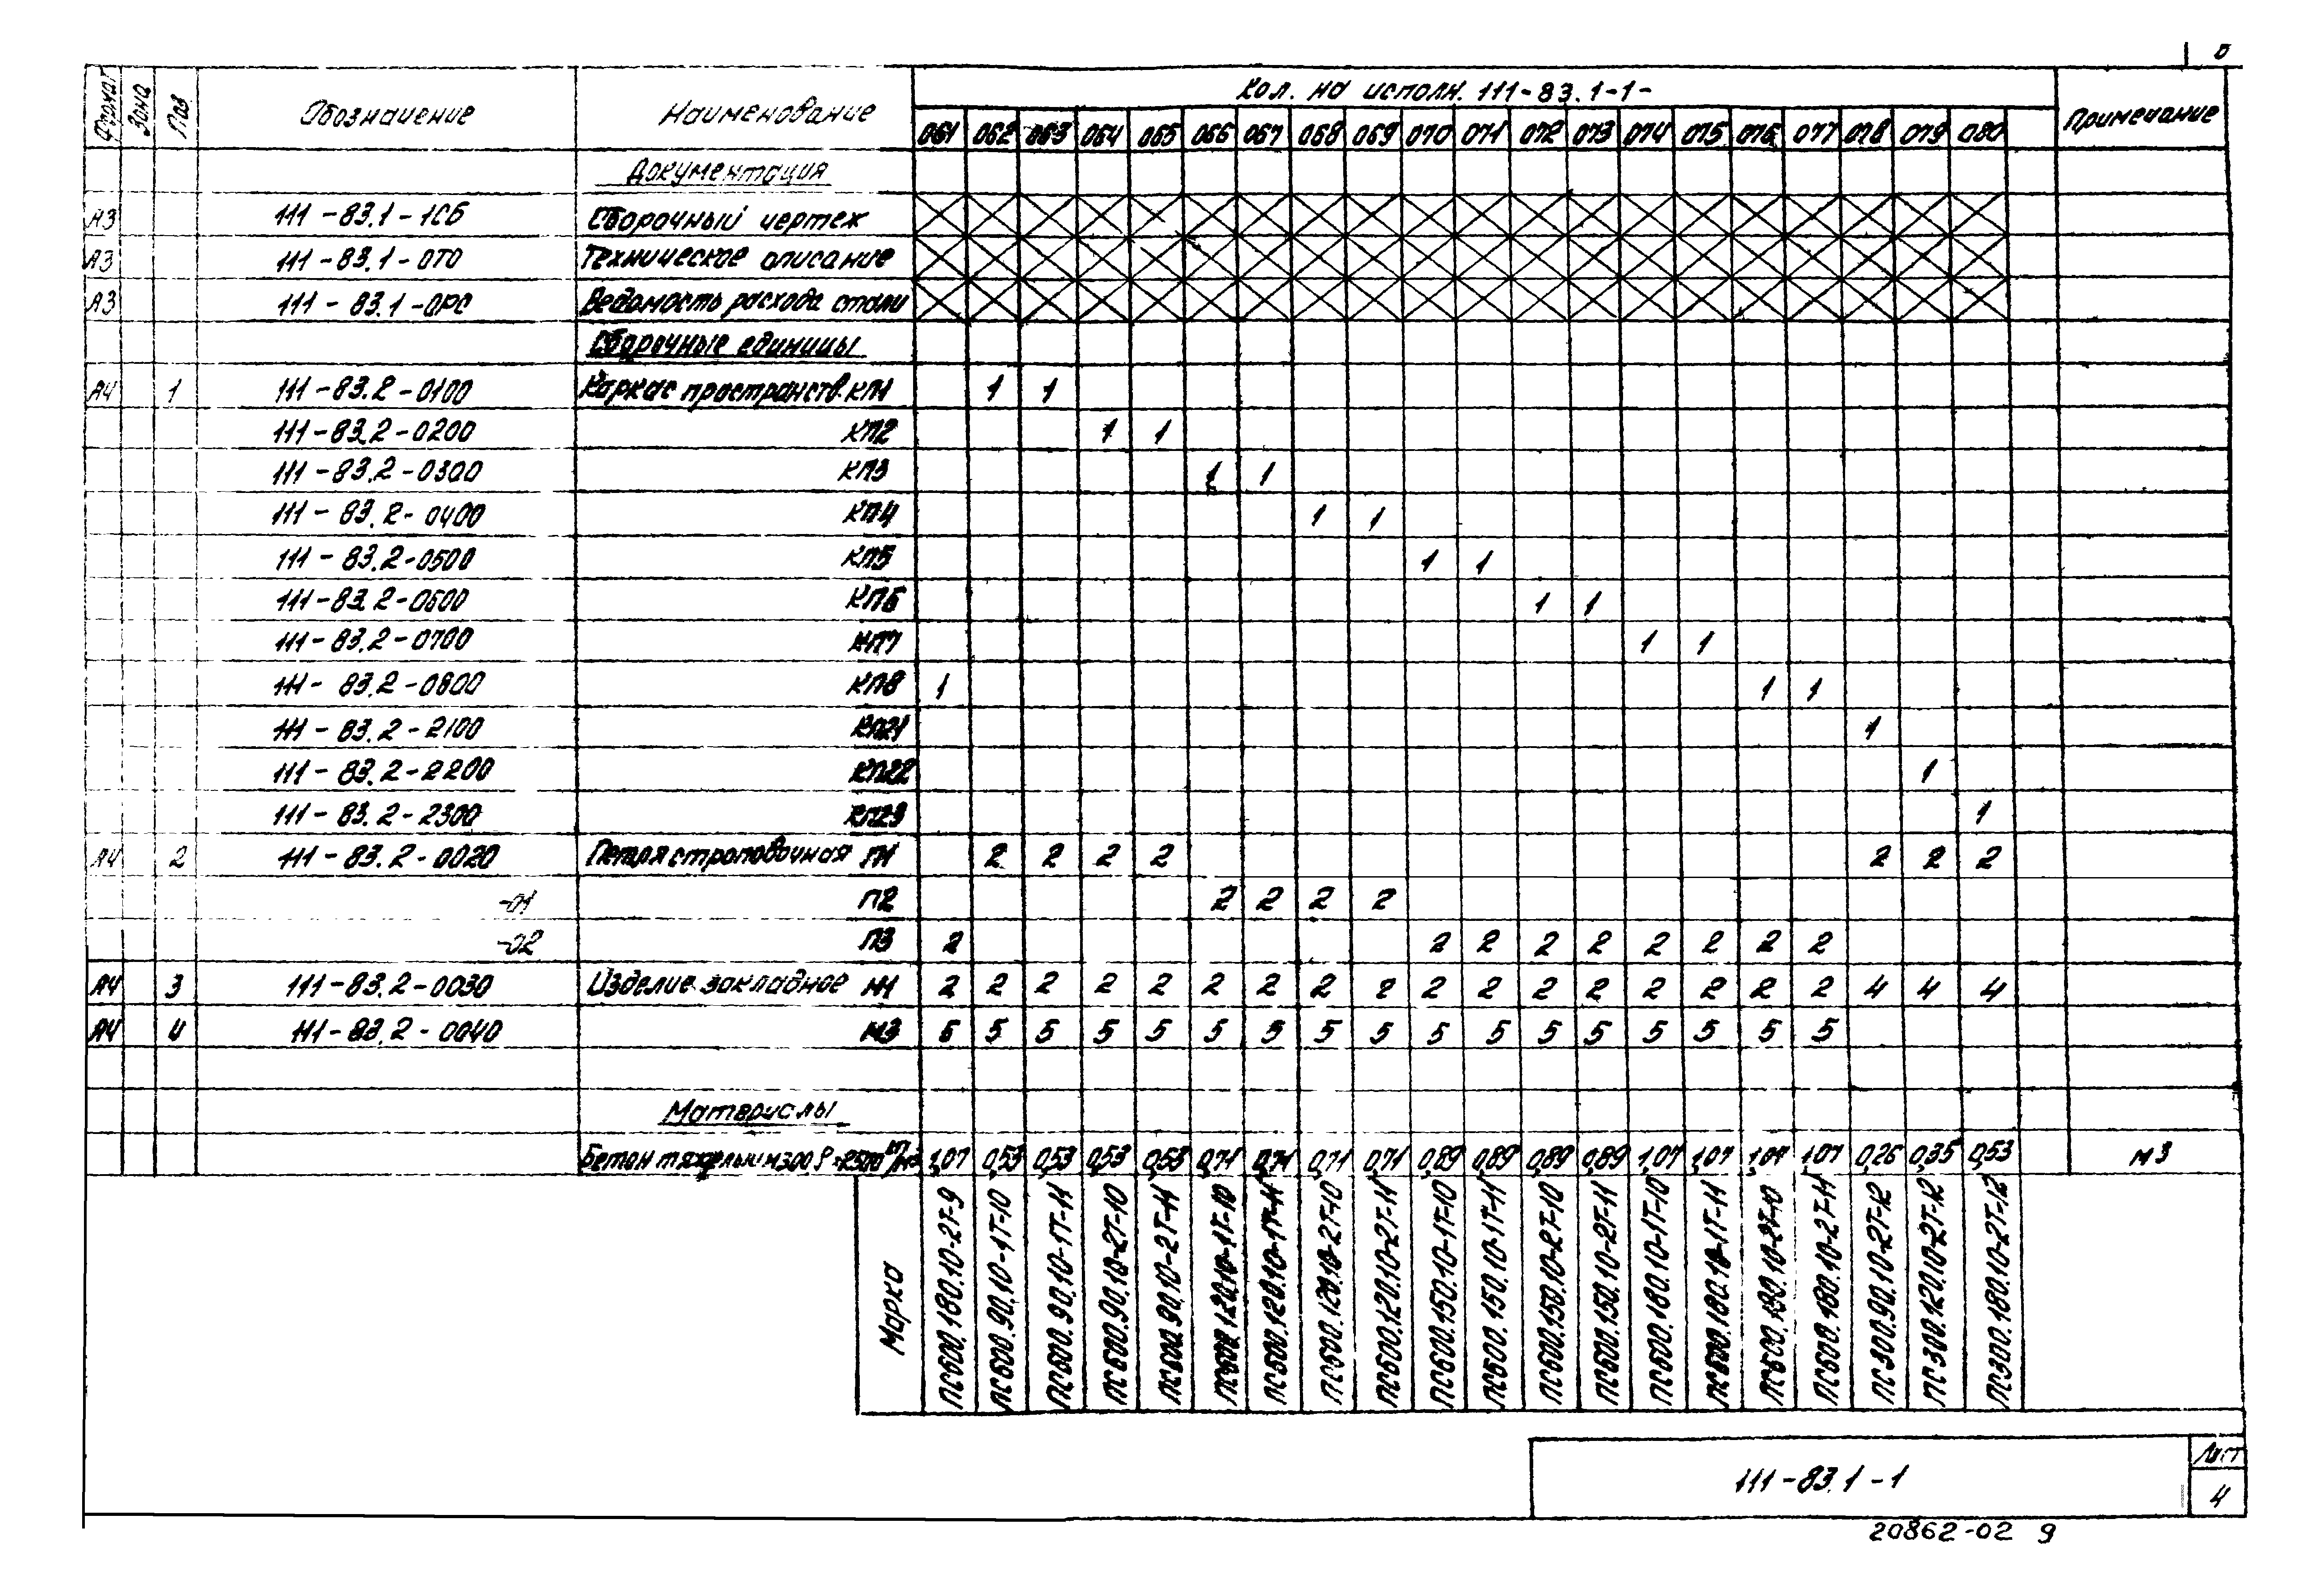 Формат Зона Поз Обозначение Наименование Кол. на исполн. 111-83.1-1- Примечание
061 062 063 064 065 066 067 068 069 070 071 072 073 074 075 076 077 078 079 080
Документация
А3 111-83.1-1СБ Сборочный чертеж
А3 111-83.1-0ТО Техническое описание
А3 111-83.1-0РС Ведомость расхода стали
Сборочные единицы
А4 1 111-83.2-0100 Каркас пространств. КП1 1 1
111-83.2-0200 КП2 1 1
111-83.2-0300 КП3 1 1
111-83.2-0400 КП4 1 1
111-83.2-0500 КП5 1 1
111-83.2-0600 КП6 1 1
111-83.2-0700 КП7 1 1
111-83.2-0800 КП8 1 1 1
111-83.2-2100 КП21 1
111-83.2-2200 КП22 1
111-83.2-2300 КП23 1
А4 2 111-83.2-0020 Петля строповочная П1 2 2 2 2 2 2 2
-01 П2 2 2 2 2
-02 П3 2 2 2 2 2 2 2 2 2
А4 3 111-83.2-0030 Изделие закладное М1 2 2 2 2 2 2 2 2 2 2 2 2 2 2 2 2 2 4 4 4
А4 4 111-83.2-0040 М3 5 5 5 5 5 5 5 5 5 5 5 5 5 5 5 5 5
Материалы
Бетон тяжелый М300 1,07 0,53 0,53 0,53 0,53 0,71 0,71 0,71 0,71 0,89 0,89 0,89 0,89 1,07 1,07 1,07 1,07 0,26 0,35 0,53 м3
Марка
ПС600.180.10-2Т-9
ПС600.90.10-1Т-10
ПС600.90.10-1Т-11
ПС600.90.10-2Т-10
ПС600.90.10-2Т-11
ПС600.120.10-1Т-10
ПС600.120.10-1Т-11
ПС600.120.10-2Т-10
ПС600.120.10-2Т-11
ПС600.150.10-1Т-10
ПС600.150.10-1Т-11
ПС600.150.10-2Т-10
ПС600.150.10-2Т-11
ПС600.180.10-1Т-10
ПС600.180.10-1Т-11
ПС600.180.10-2Т-10
ПС600.180.10-2Т-11
ПС300.90.10-2Т-12
ПС300.120.10-2Т-12
ПС300.180.10-2Т-12
111-83.1-1
Лист
4
20862-02 9